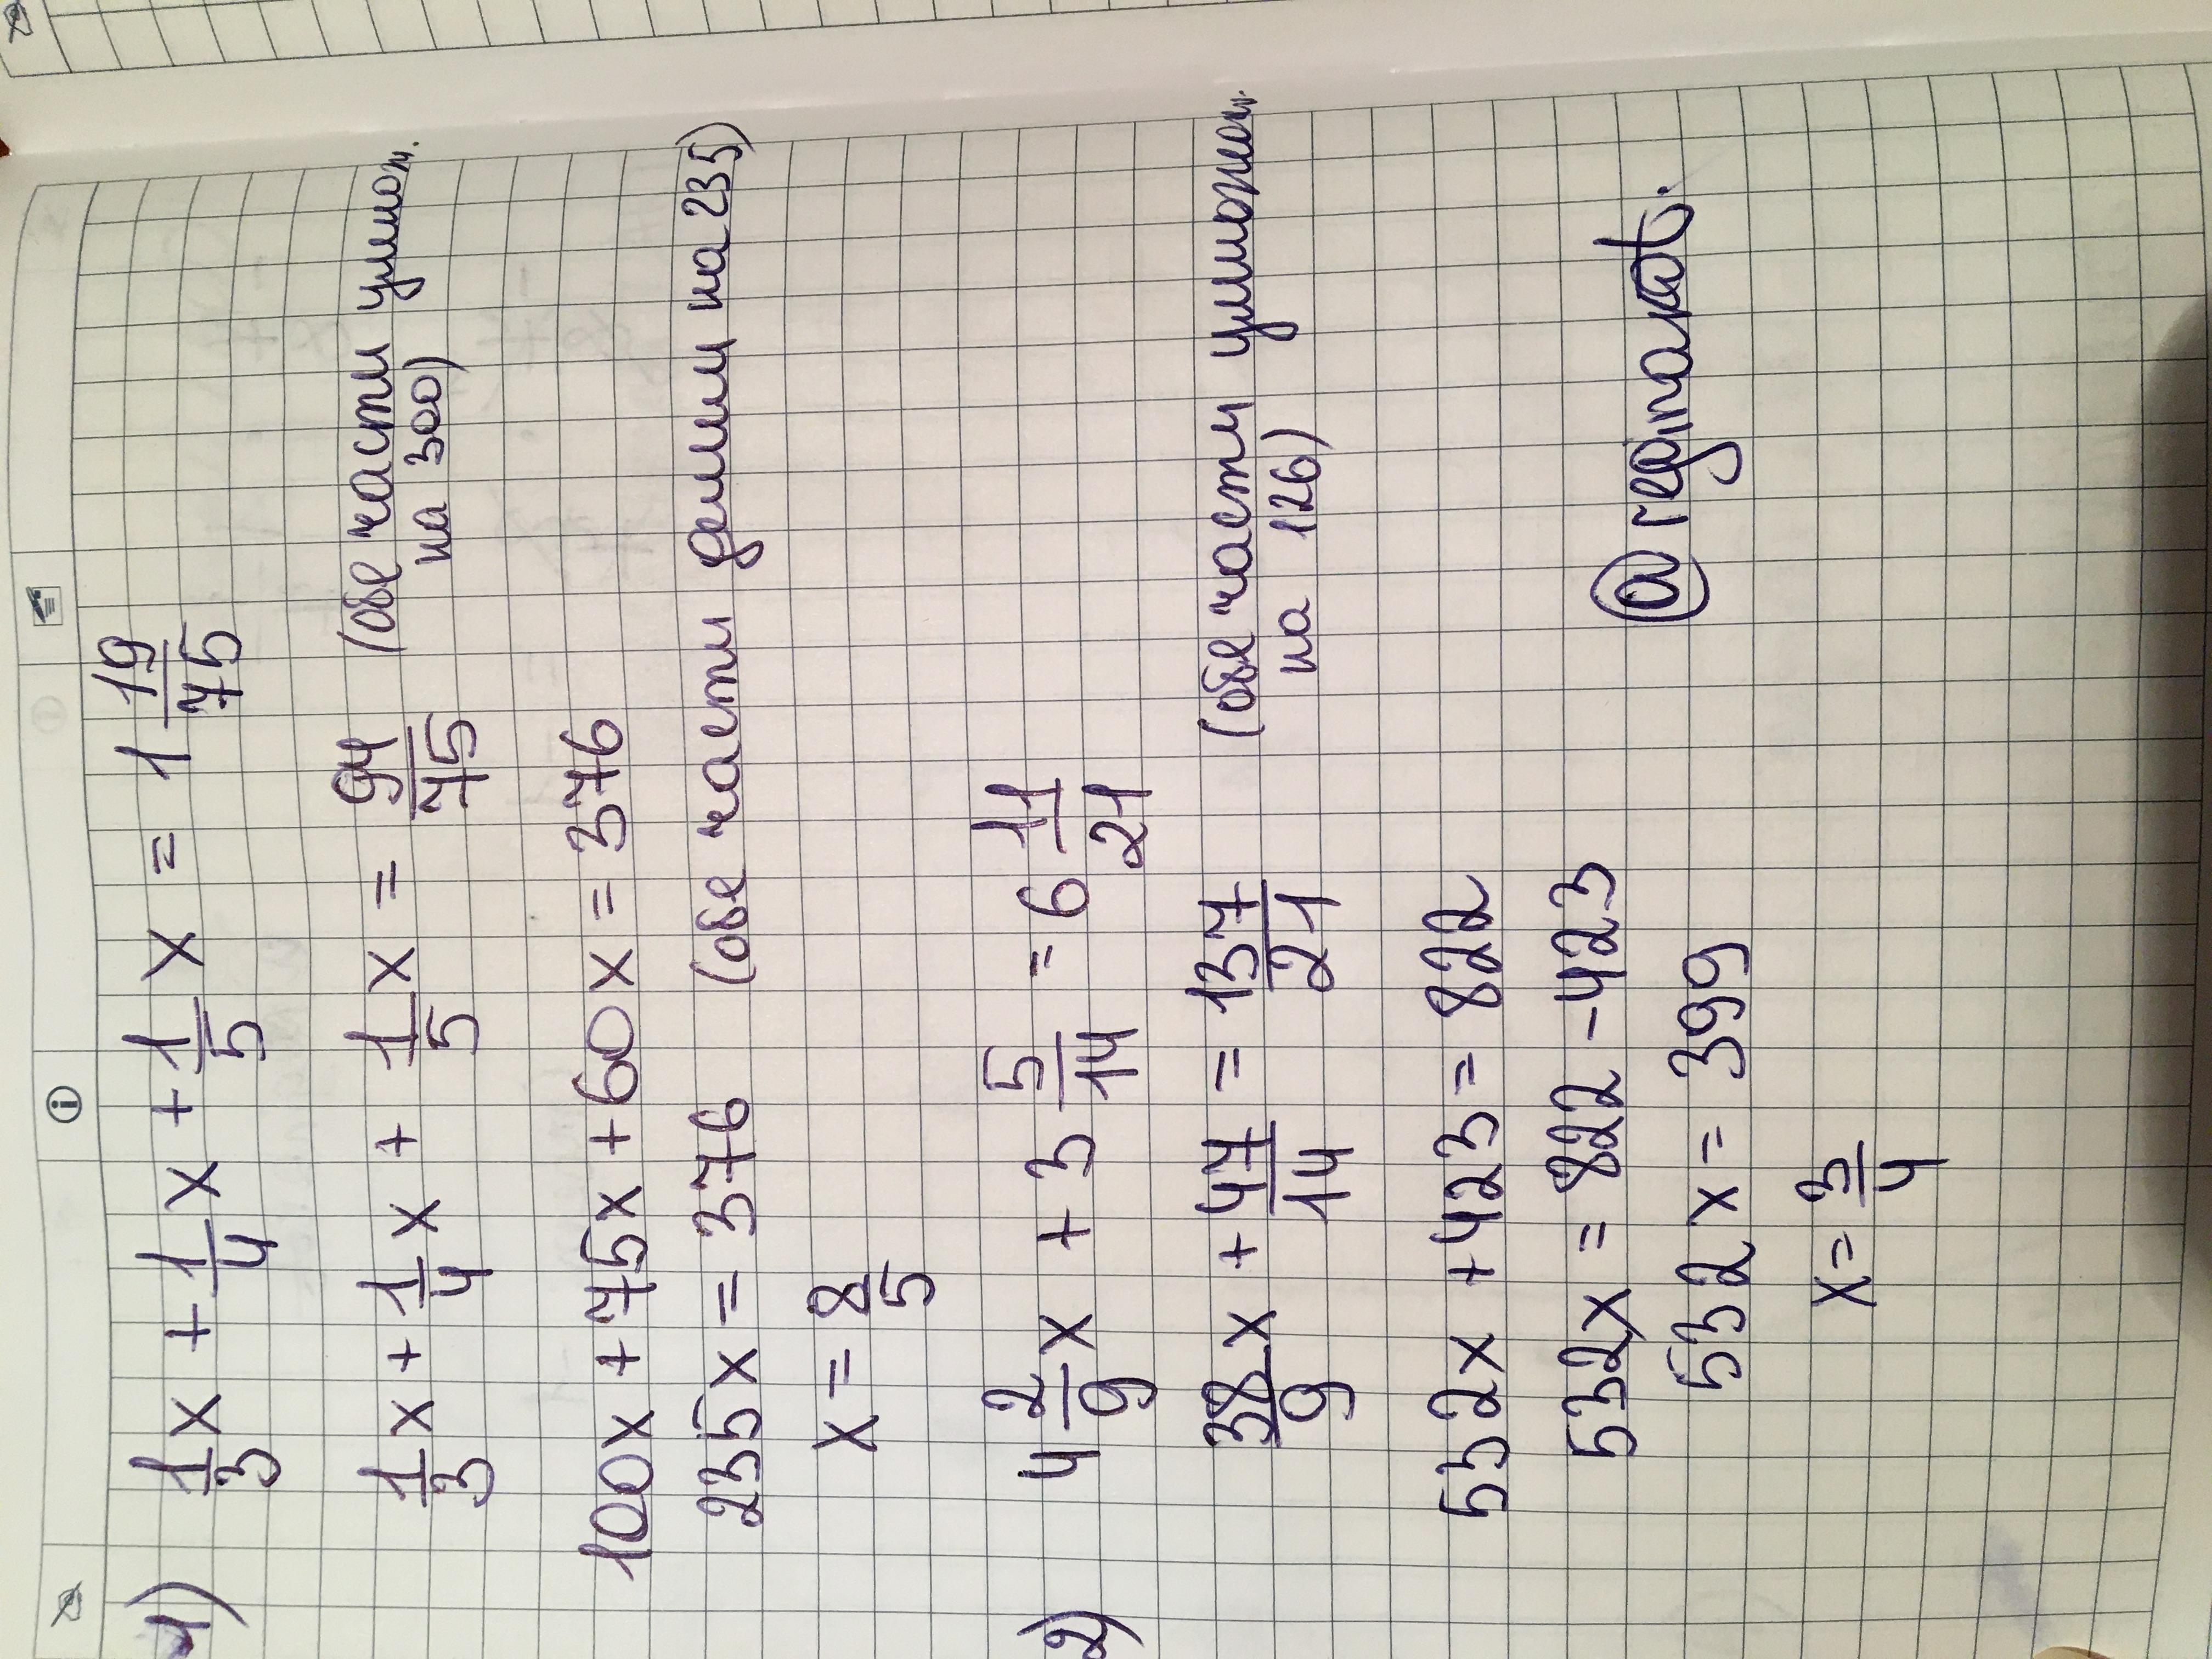 1) 1/3 x + 1/4 x + 1/5 x = 1 19/75
1/3 x + 1/4 x + 1/5 x = 94/75 (обе части умнож.
на 300)
100x + 75x + 60x = 376
235x = 376 (обе части делим на 235)
x = 8/5
2) 4 2/9 x + 3 5/14 = 6 11/21
38/9 x + 47/14 = 137/21 (обе части умножен.
на 126)
532x + 423 = 822
532x = 822 - 423
532x = 399
x = 3/4
@reginakat.